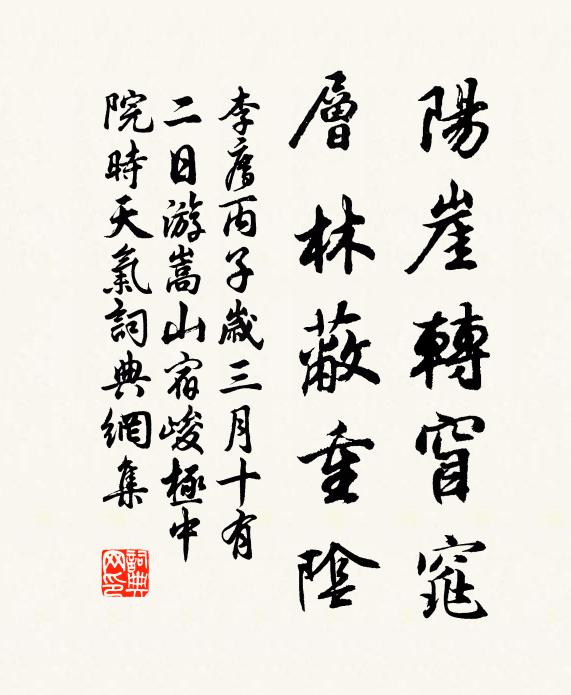 陽崖轉窅窕
層林蔽重陰
李廌丙子歲三月十有
二日游嵩山宿峻極中
院時天氣詞典網集
詞典
网印